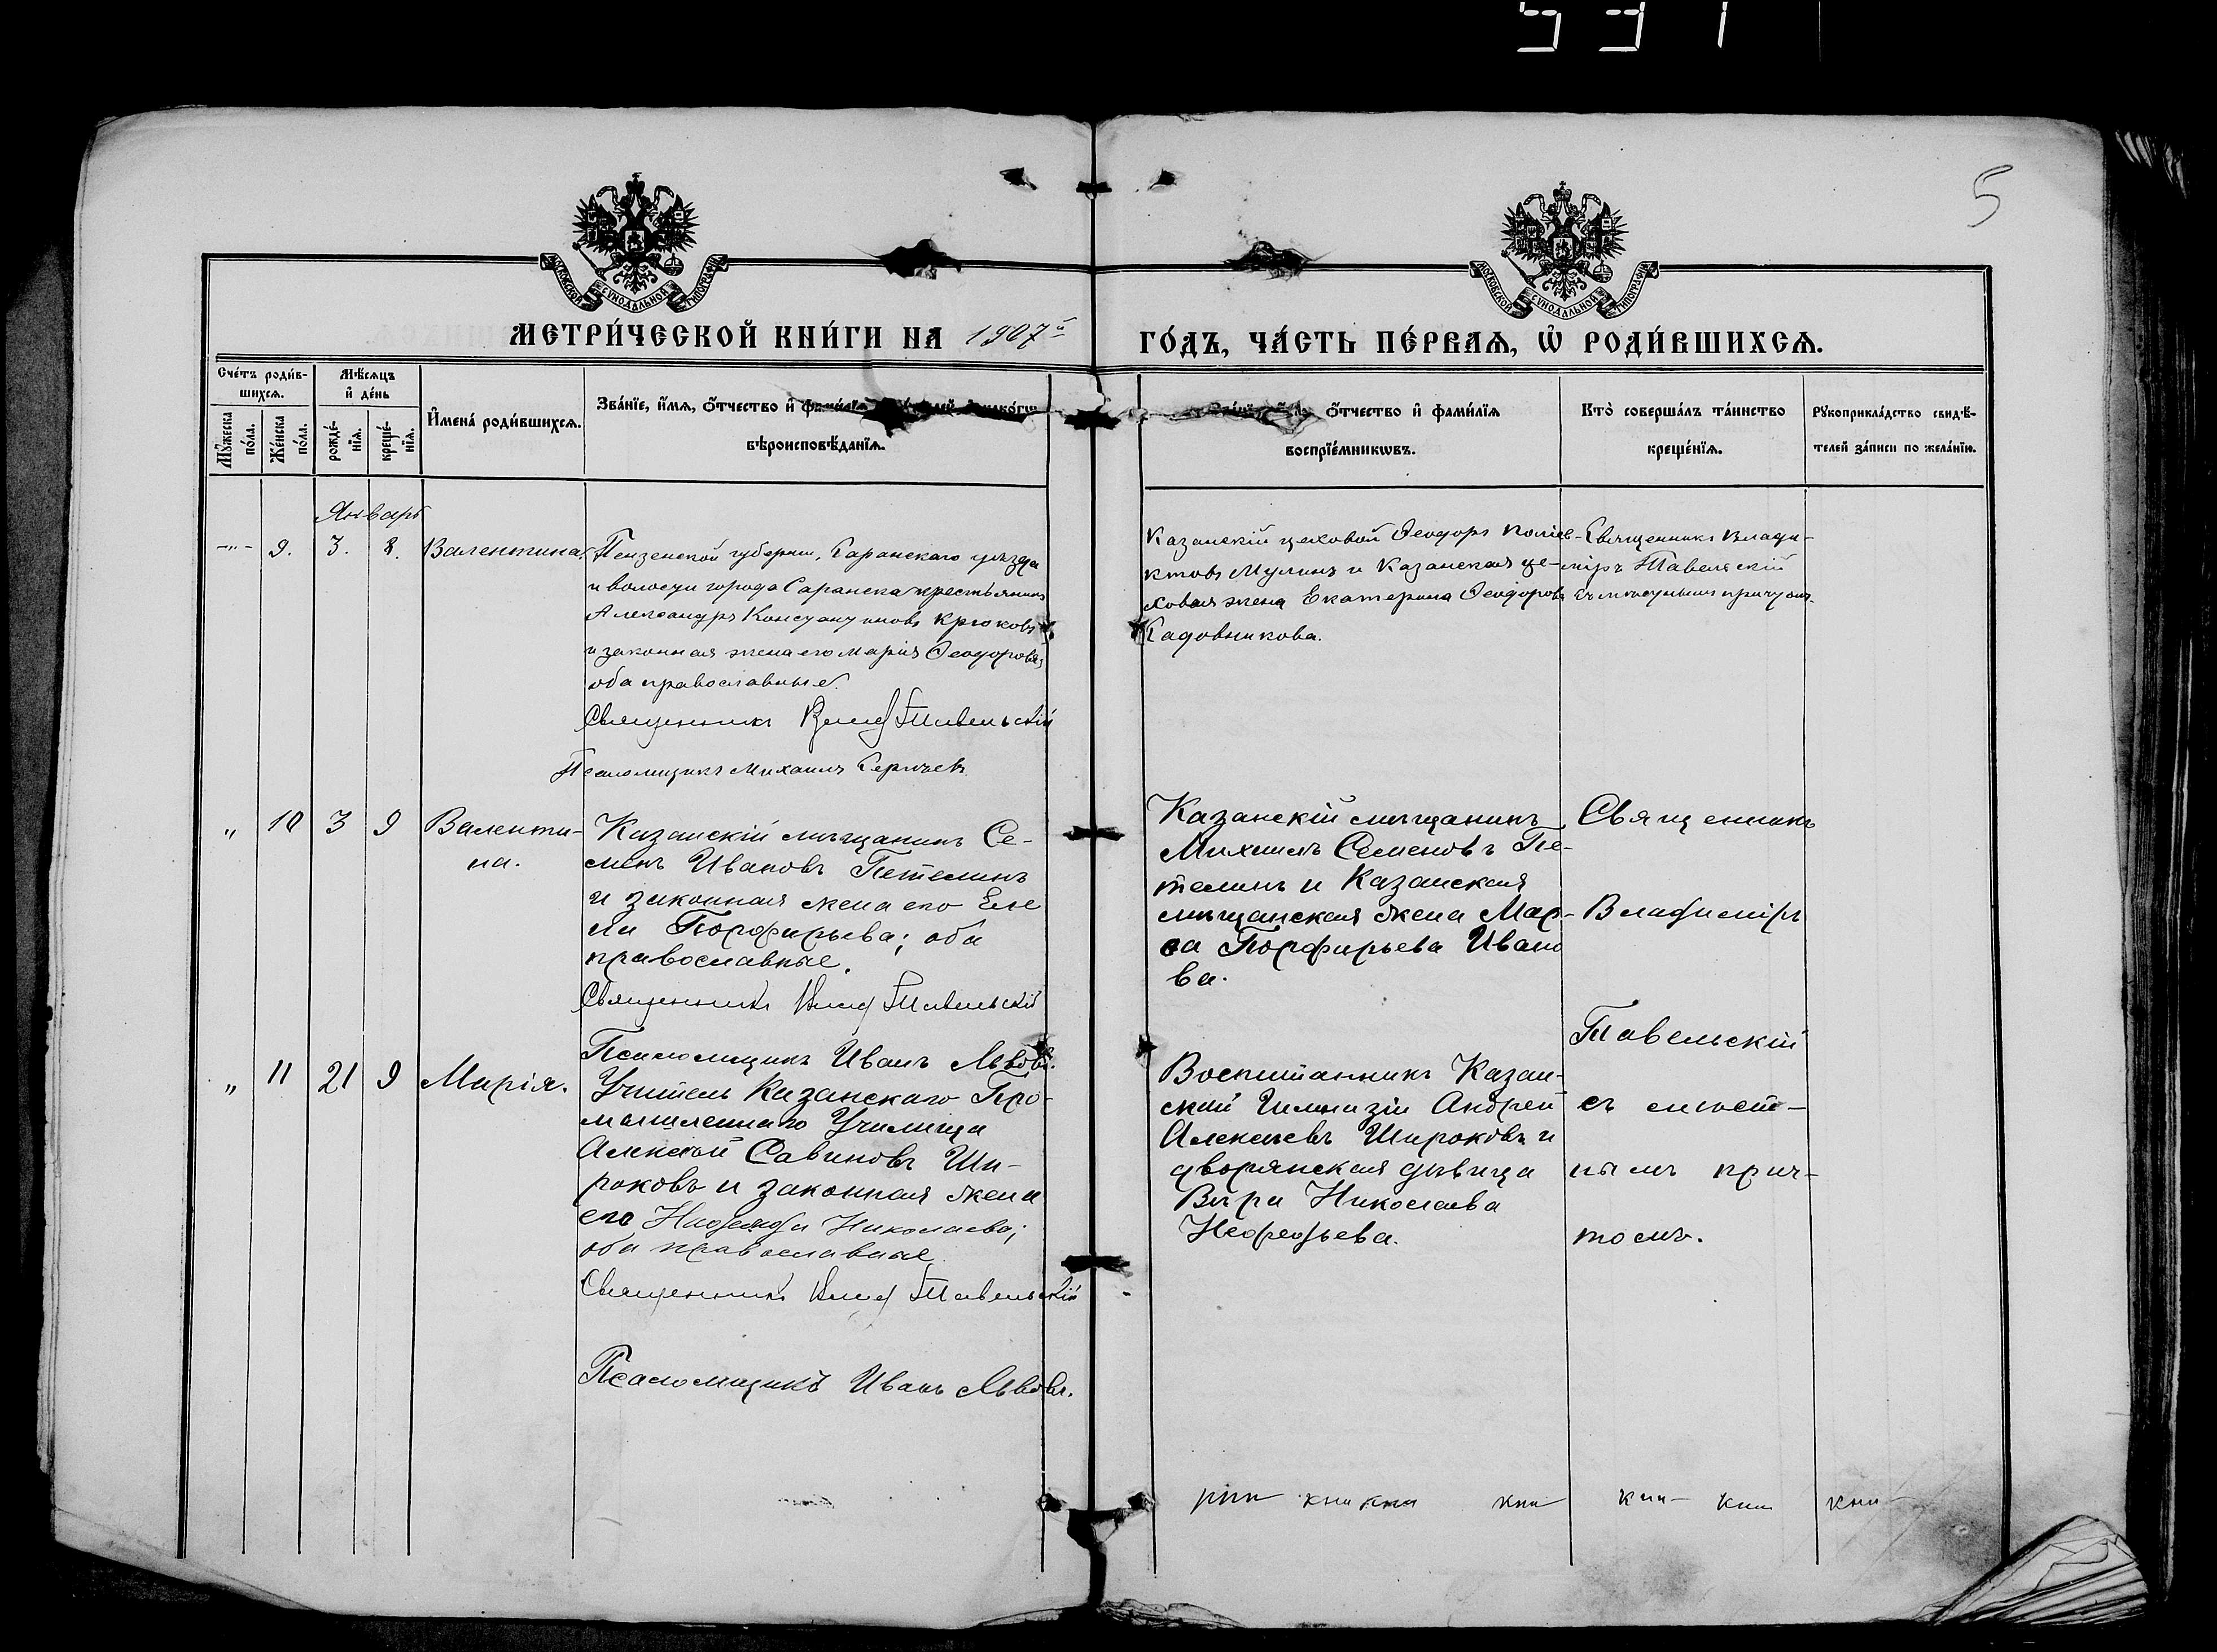 531
5
МОСКОВСКОЙ СУНОДАЛЬНОЙ ТИПОГРАФІИ
МОСКОВСКОЙ СУНОДАЛЬНОЙ ТИПОГРАФІИ
МЕТРИ́ЧЕСКОЙ КНИ́ГИ НА 1907й ГО́ДЪ, ЧА́СТЬ ПЕ́РВАѦ, Ѡ҆ РОДИ́ВШИХСѦ.
Сче́тъ роди́в-
шихсѧ.
Мꙋ́жеска по́ла.
Же́нска по́ла.
Мѣ́сѧцъ
и҆ де́нь
рожде́-нїѧ.
креще́-нїѧ.
И҆мена̀ роди́вшихсѧ.
Зва́нїе, и҆́мѧ, ѻ҆́тчество и҆ фами́лїѧ
вѣроисповѣ́данїѧ.
ѻ҆́тчество и҆ фами́лїѧ
воспрїе́мникѡвъ.
Кто̀ соверша́лъ та́инство
креще́нїѧ.
Рꙋкоприкла́дство свидѣ́-
телей за́писи по жела́нїю.
Январь
-"- 9. 3. 8. Валентина.
Пензенской губерніи, Саранскаго уѣзда
и волости города Саранска крестьянинъ
Александръ Константиновъ Крюковъ
и законная жена его Марія Ѳеодорова,
оба православные.
Священникъ Влад Тавельскій
Псаломщикъ Михаилъ Сергѣевъ.
Казанскій цеховой Ѳеодоръ Поліев-
ктовъ Мулинъ и Казанская це-
ховая жена Екатерина Ѳеодорова
Садовникова.
Священникъ Влади-
міръ Тавельскій
съ мѣстнымъ причтомъ.
" 10 3 9 Валенти-
на.
Казанскій мѣщанинъ Се-
менъ Ивановъ Петелинъ
и законная жена его Еле
на Порфирьева; оба
православные.
Священникъ Влад Тавельскій
Псаломщикъ Иванъ Львовъ.
Казанскій мѣщанинъ
Михаилъ Семеновъ Пе-
телинъ и Казанская
мѣщанская жена Мар-
ѳа Порфирьева Ивано
ва.
Священникъ
Владиміръ
Тавельскій
съ мѣст-
нымъ прич-
томъ.
" 11 21 9 Марія.
Учитель Казанскаго Про-
мышленнаго Училища
Алексѣй Савиновъ Ши-
роковъ и законная жена
его Надежда Николаева;
оба православные.
Священникъ Влад Тавельскій
Псаломщикъ Иванъ Львовъ.
Воспитанникъ Казан-
ской Гимназіи Андрей
Алексѣевъ Широковъ и
дворянская дѣвица
Вѣра Николаева
Нефедьева.